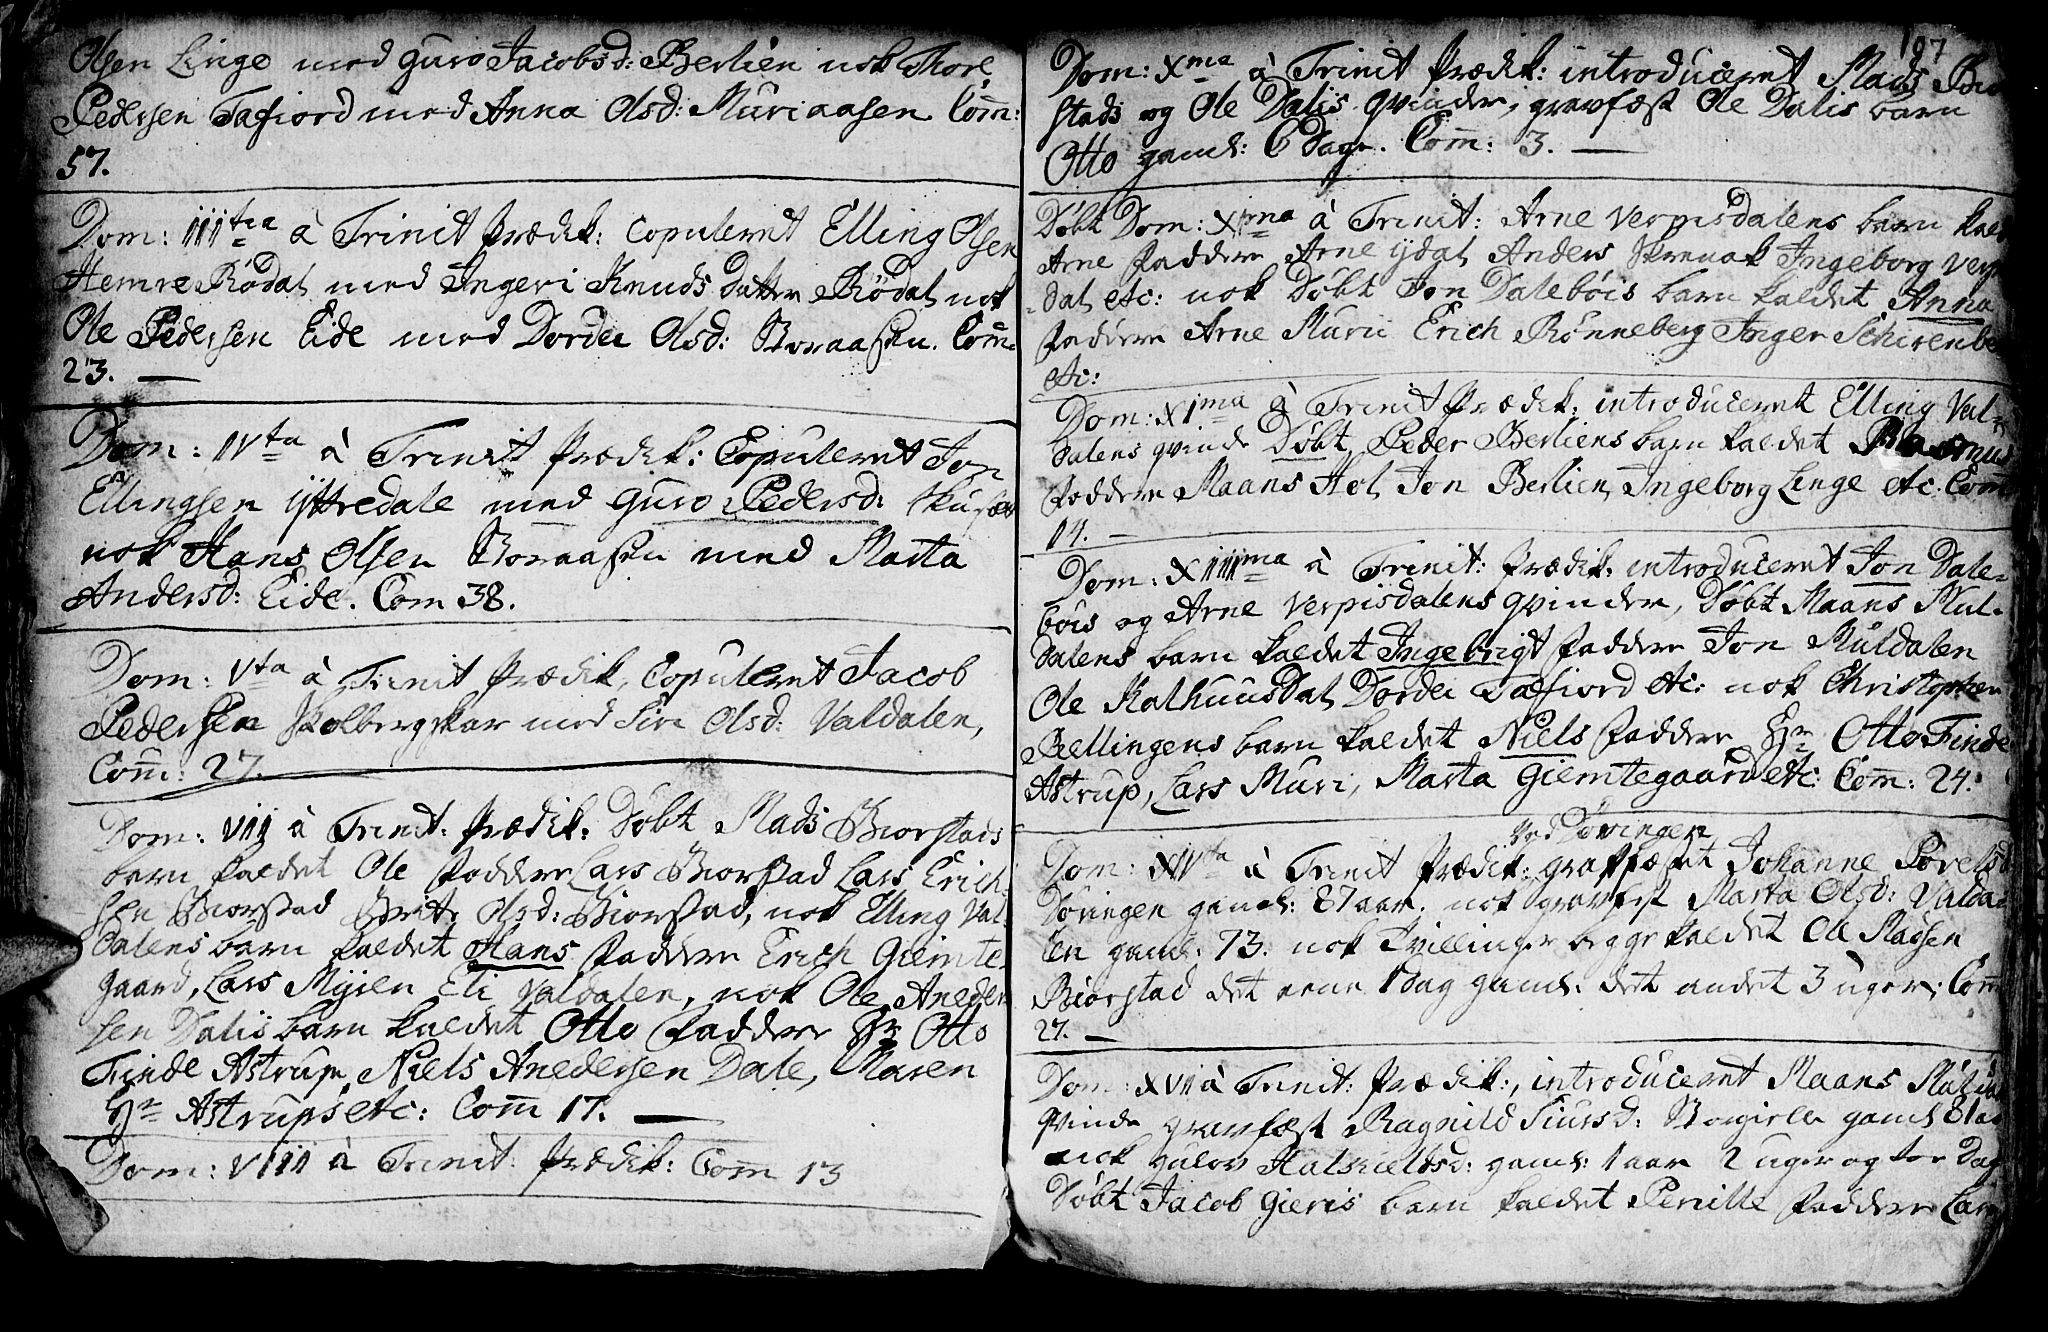 Olsen Linge med Guro Jacobsd: Berlien nok Thore
Pedersen Tafiord med Anna Olsd: Muriaasen Com̅:
57.
Dom: IIItia à Trinit Prædik: Copuleret Elling Olsen
Hemre Rødal med Ingeri Knuds Datter Rødal nok
Ole Pedersen Eide med Dordei Olsd: Noraasen. Com̅:
23. —
Dom: IVta à Trinit Prædik: Copuleret Jon
Ellingsen Yttredale med Guro Pedersd:
nok Hans Olsen Noraasen med Marta
Andersd: Eide. Com 38.
Dom: Vta à Trinit Prædik, Copuleret Jacob
Pedersen Kolbergskar med Siri Olsd: Valdalen,
Com̅: 27.
Dom: VII à Trinit: Prædik: Døbt Mads Biorstads
barn kaldet Ole Faddere Lars Biorstad Lars Erich-
sen Biorstad Brit Olsd: Biorstad, nok Elling Val-
dalens barn kaldet Hans Faddere Erich Giemte-
gaard, Lars Myren Eli Valdalen, nok Ole Aneder
sen Dalis barn kaldet Otto Faddere Hr Otto
Finde Astrup, Niels Anedersen Dale, Maren
Hr Astrups etc: Com̅ 17. —
Dom: VIII à Trinit: Prædik: Com̅ 13
107
Dom: Xma à Trinit Prædik: introduceret Mads Bior
stads og Ole Dalis Qvinder, gravfæst Ole Dalis barn
Otto gaml: 6 Dage. Com̅: 3. —
Døbt Dom: XIma à Trinit: Arne Verpisdalens barn kald
Arne Faddere Arne Ydal, Anders Ingeborg Verp
dal etc: nok Døbt Jon Dalebøis barn kaldet Anna
Faddere Arne Murii Erich Rønneberg Inger
etc:
Dom: XIma à Trinit Prædik: introduceret Elling Val-
dalens qvinde Døbt Peder Berliens barn kaldet Rasmus
Faddere Maans Hol, Jon Berlien, Ingeborg Linge etc. Com̅
14. —
Dom: XIIIma à Trinit: Prædik: introduceret Jon Dale-
bøis og Arne Verpisdalens qvinder, Døbt Maans Mul-
dalens barn kaldet Ingebrigt Faddere Jon Muldalen
Ole Kalhuusdal, Dordei Tafiord etc: nok Christopher
Rellingens barn kaldet Niels Faddere Hr Otto Finde
Astrup, Lars Muri, Marta Giemtegaard etc: Com̅: 24.
Ved Døvingen
Dom: XVta à Trinit Prædik: gravfæstet Johanne Povelsd
Døvingen gaml: 87 aar. nok gravfest Marta Olsd: Valda
len gaml: 73. nok Tvillinger begge kaldet Ole Madsen
Biorstad det eene 1 Dag gaml: det andet 3 uger; Com̅
27. —
Dom: XVII à Trinit: Prædik:, introduceret Maans Muldal
Qvinde gravfæst Ragnild Siursd: gaml 81 aar
nok Gulov Halskieldsd: gaml: 1 aar 2 uger og tre Dag
Døbt Jacob Gieris barn kaldet Pernille Faddere Lars